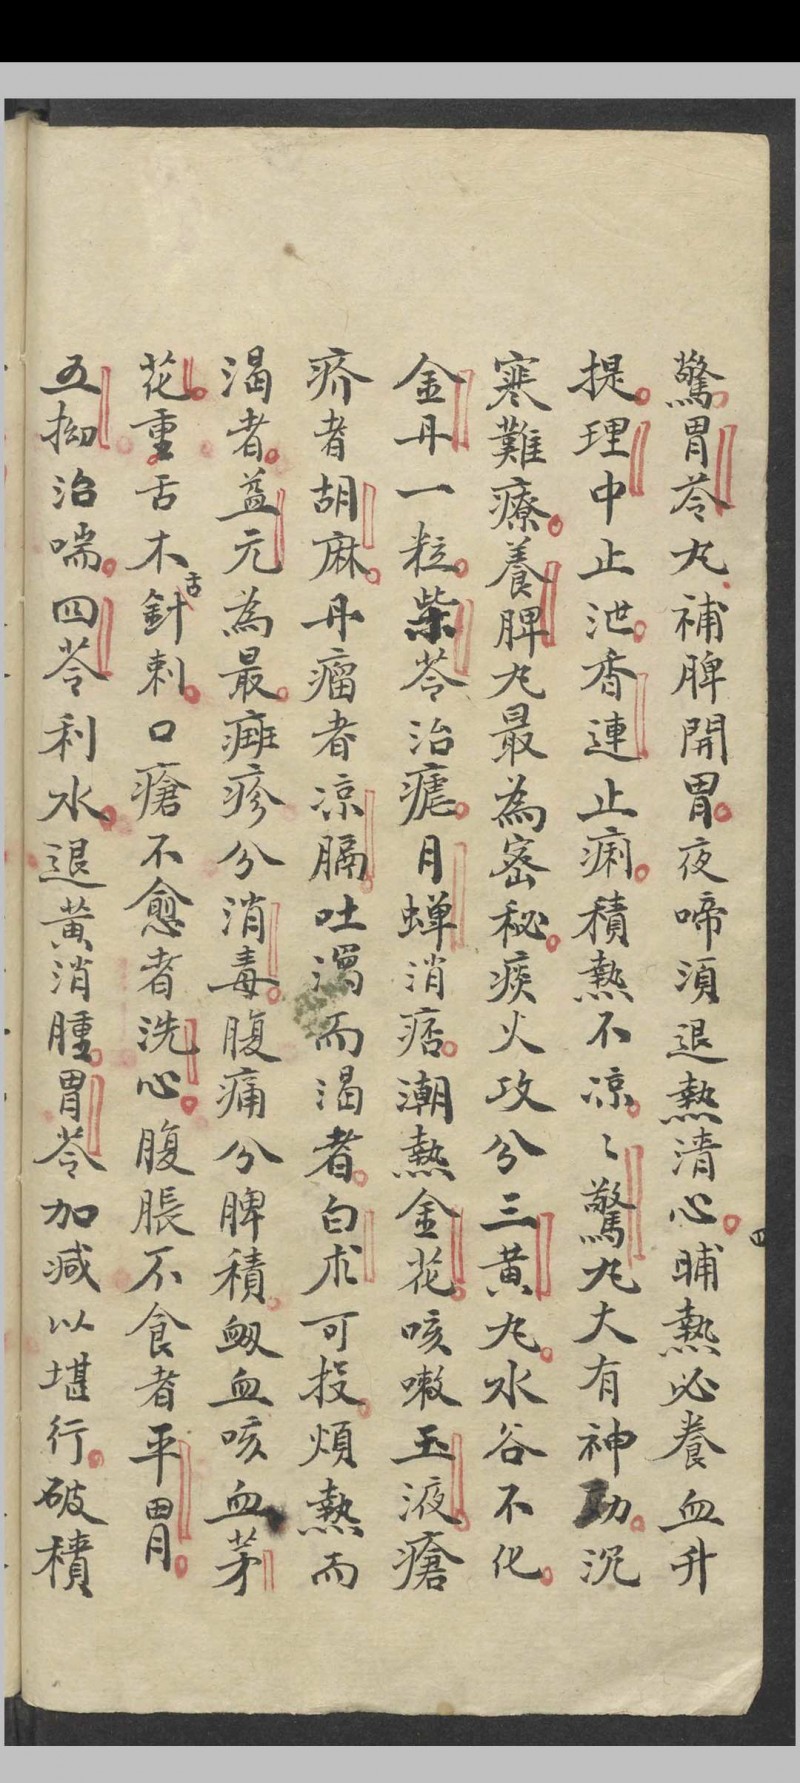 驚胃苓丸補脾開胃夜啼須退熱清心晡熱必養血升
四
提理中止泄香連止痢積熱不凉〻驚丸大有神功沉
寒難療養脾丸最為密秘痰火攻兮三黄丸水谷不化
金丹一粒柴苓治瘧月蟬消痞潮熱金花咳嗽玉液瘡
疥者胡麻丹瘤者凉膈吐瀉而渴者白朮可投煩熱而
渴者益元為最痲疹兮消毒腹痛兮脾積衂血咳血茅
花重舌木舌針刺口瘡不愈者洗心腹脹不食者平胃
五拗治喘四苓利水退黄消腫胃苓加减以堪行破積